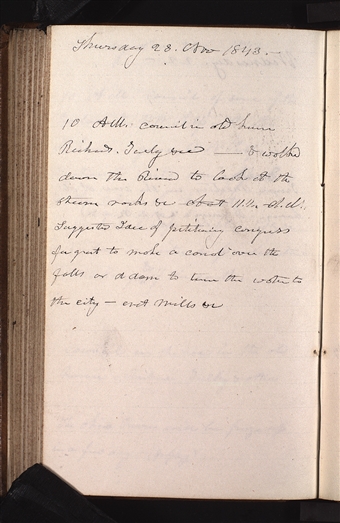 Thursday 23. Nov 1843.—
10 A.M. council in old
Richards. &c — & walked
down the River to look at the
steam works &c about 11½. A.M.
Suggested Idea of petitioning congress
for grant to make a canal over the
falls or a dam to turn the water to
the city — erect mills &c